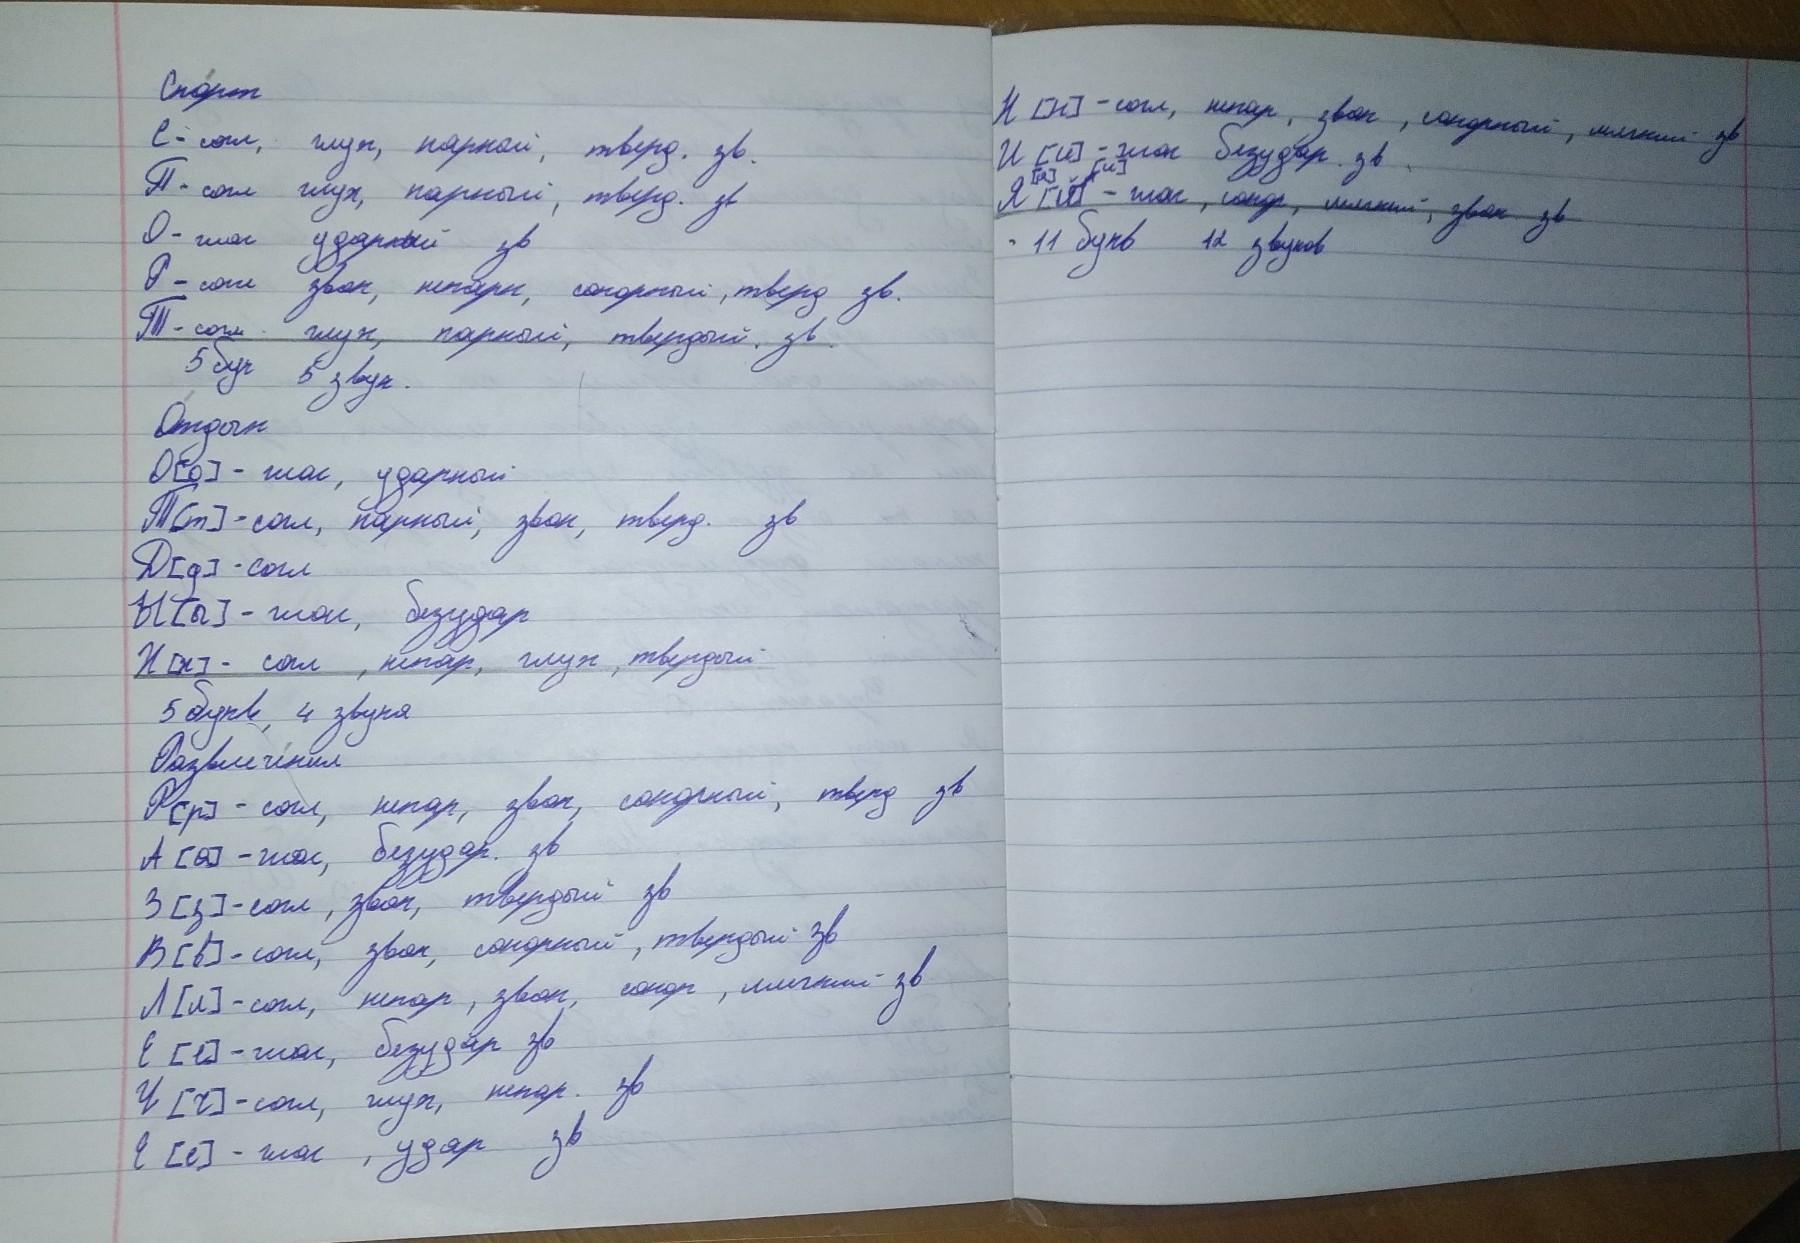 Спорт
С - согл, глух, парный, тверд. зв.
П - согл глух, парный, тверд. зв
О - глас ударный зв
Р - согл звон, непарн, сонорный, тверд зв.
Т - согл. глух, парный, твердый. зв.
5 бук 5 звук.
Отдых
О[о] - глас, ударный
Т[т] - согл, парный, звон, тверд. зв
Д[д] - согл
Ы[ы] - глас, безудар
Х[х] - согл, непар, глух, твердый
5 букв, 4 звука
Развлечения
Р[р] - согл, непар, звон, сонорный, тверд зв
А [а] - глас, безудар. зв
З [з] - согл, звон, твердый зв
В [в] - согл, звон, сонорный, твердый зв
Л [л] - согл, непар, звон, сонор, мягкий зв
Е [е] - глас, безудар зв
Ч [ч] - согл, глух, непар. зв
Е [е] - глас, удар зв
Н [н] - согл, непар, звон, сонорный, мягкий зв
И [и] - глас безудар. зв.
Я [й] - глас, сонор, мягкий, звон зв
- 11 букв 12 звуков